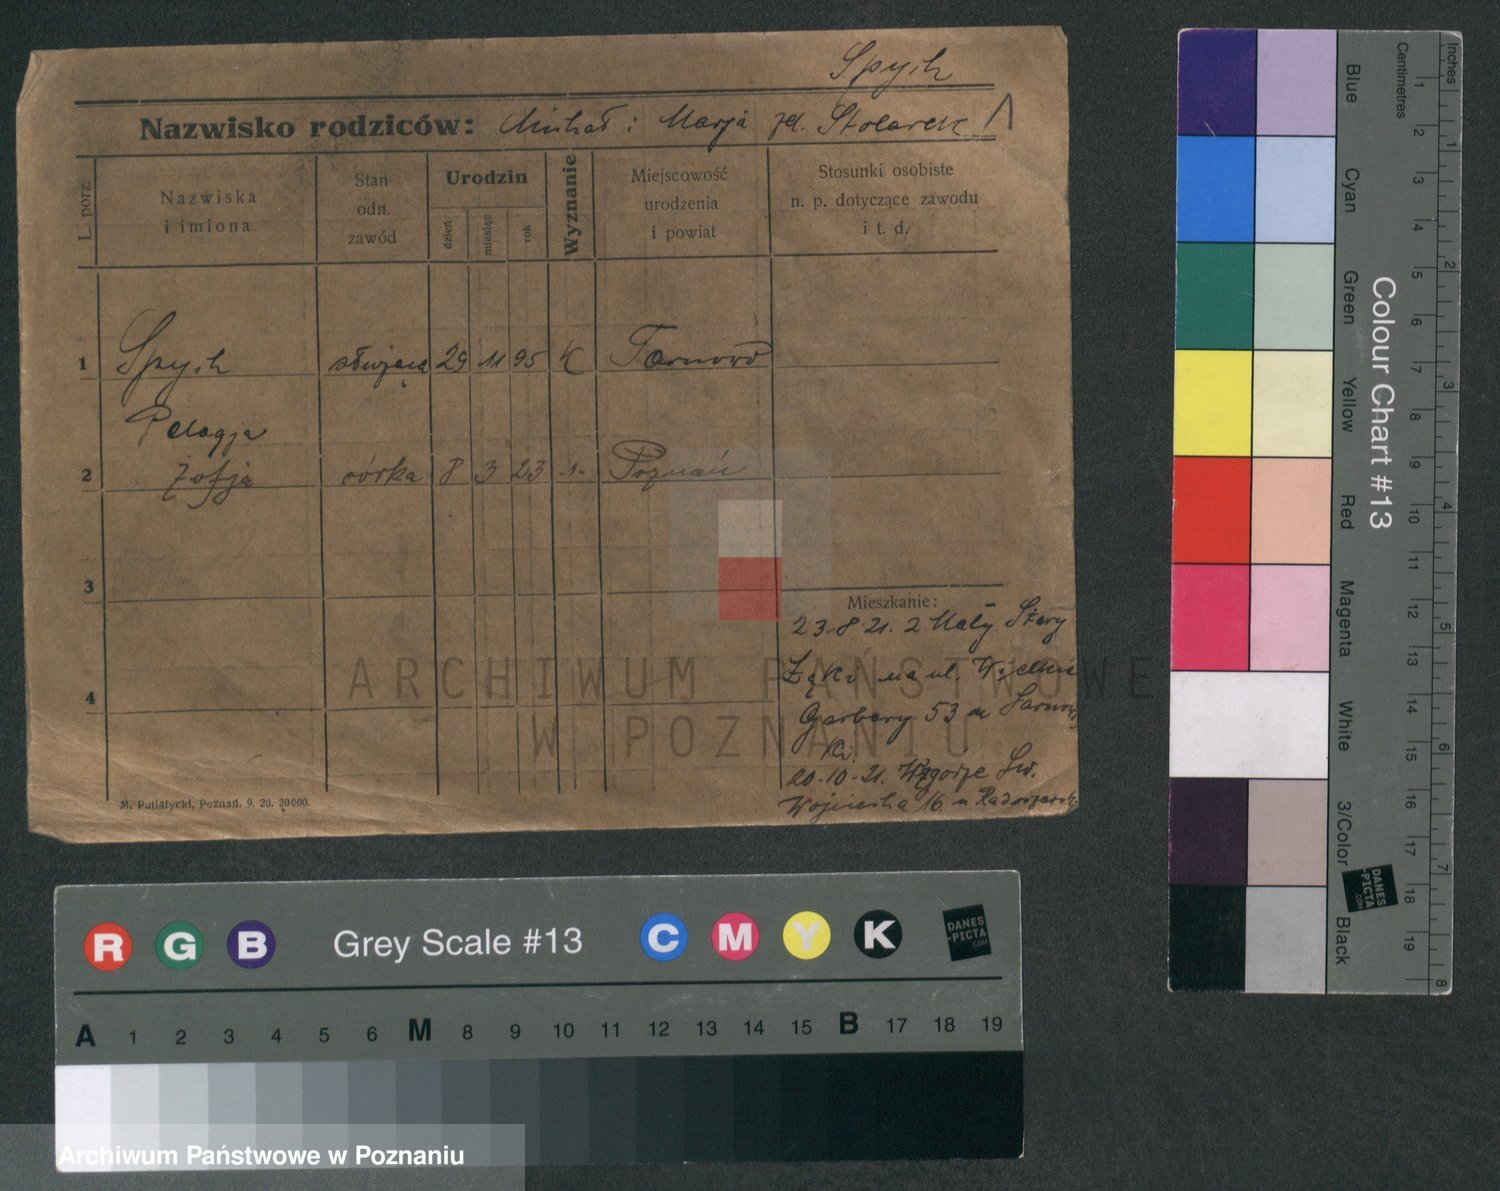 Spych
Nazwisko rodziców: Michał i Marja zd. Stolarek 1
L. porz.
Nazwiska
i imiona
Stan
odn.
zawód
Urodzin
dzień
miesiąc
rok
Wyznanie
Miejscowość
urodzenia
i powiat
Stosunki osobiste
n. p. dotyczące zawodu
i t. d.
1 Spych służąca 29 11 95 K Tarnowo
Pelagja
2 Zofja córka 8 3 23 -„- Poznań
3
Mieszkanie:
23.8.21. z Mały Stary
Łąki na ul. Wielkie
4
Garbary 53 u
ki.
20.10.21. Wzgórze Św.
Wojciecha 16 u
M. Putiatycki, Poznań. 9. 20. 20000.
ARCHIWUM PAŃSTWOWE
W POZNANIU
R G B Grey Scale #13 C M Y K
DANES
-PICTA
.COM
A 1 2 3 4 5 6 M 8 9 10 11 12 13 14 15 B 17 18 19
Archiwum Państwowe w Poznaniu
Colour Chart #13
Blue
Cyan
Green
Yellow
Red
Magenta
White
3/Color
Black
Centimetres
1 2 3 4 5 6 7 8 9 10 11 12 13 14 15 16 17 18 19
Inches
1 2 3 4 5 6 7 8
DANES
-PICTA
.COM